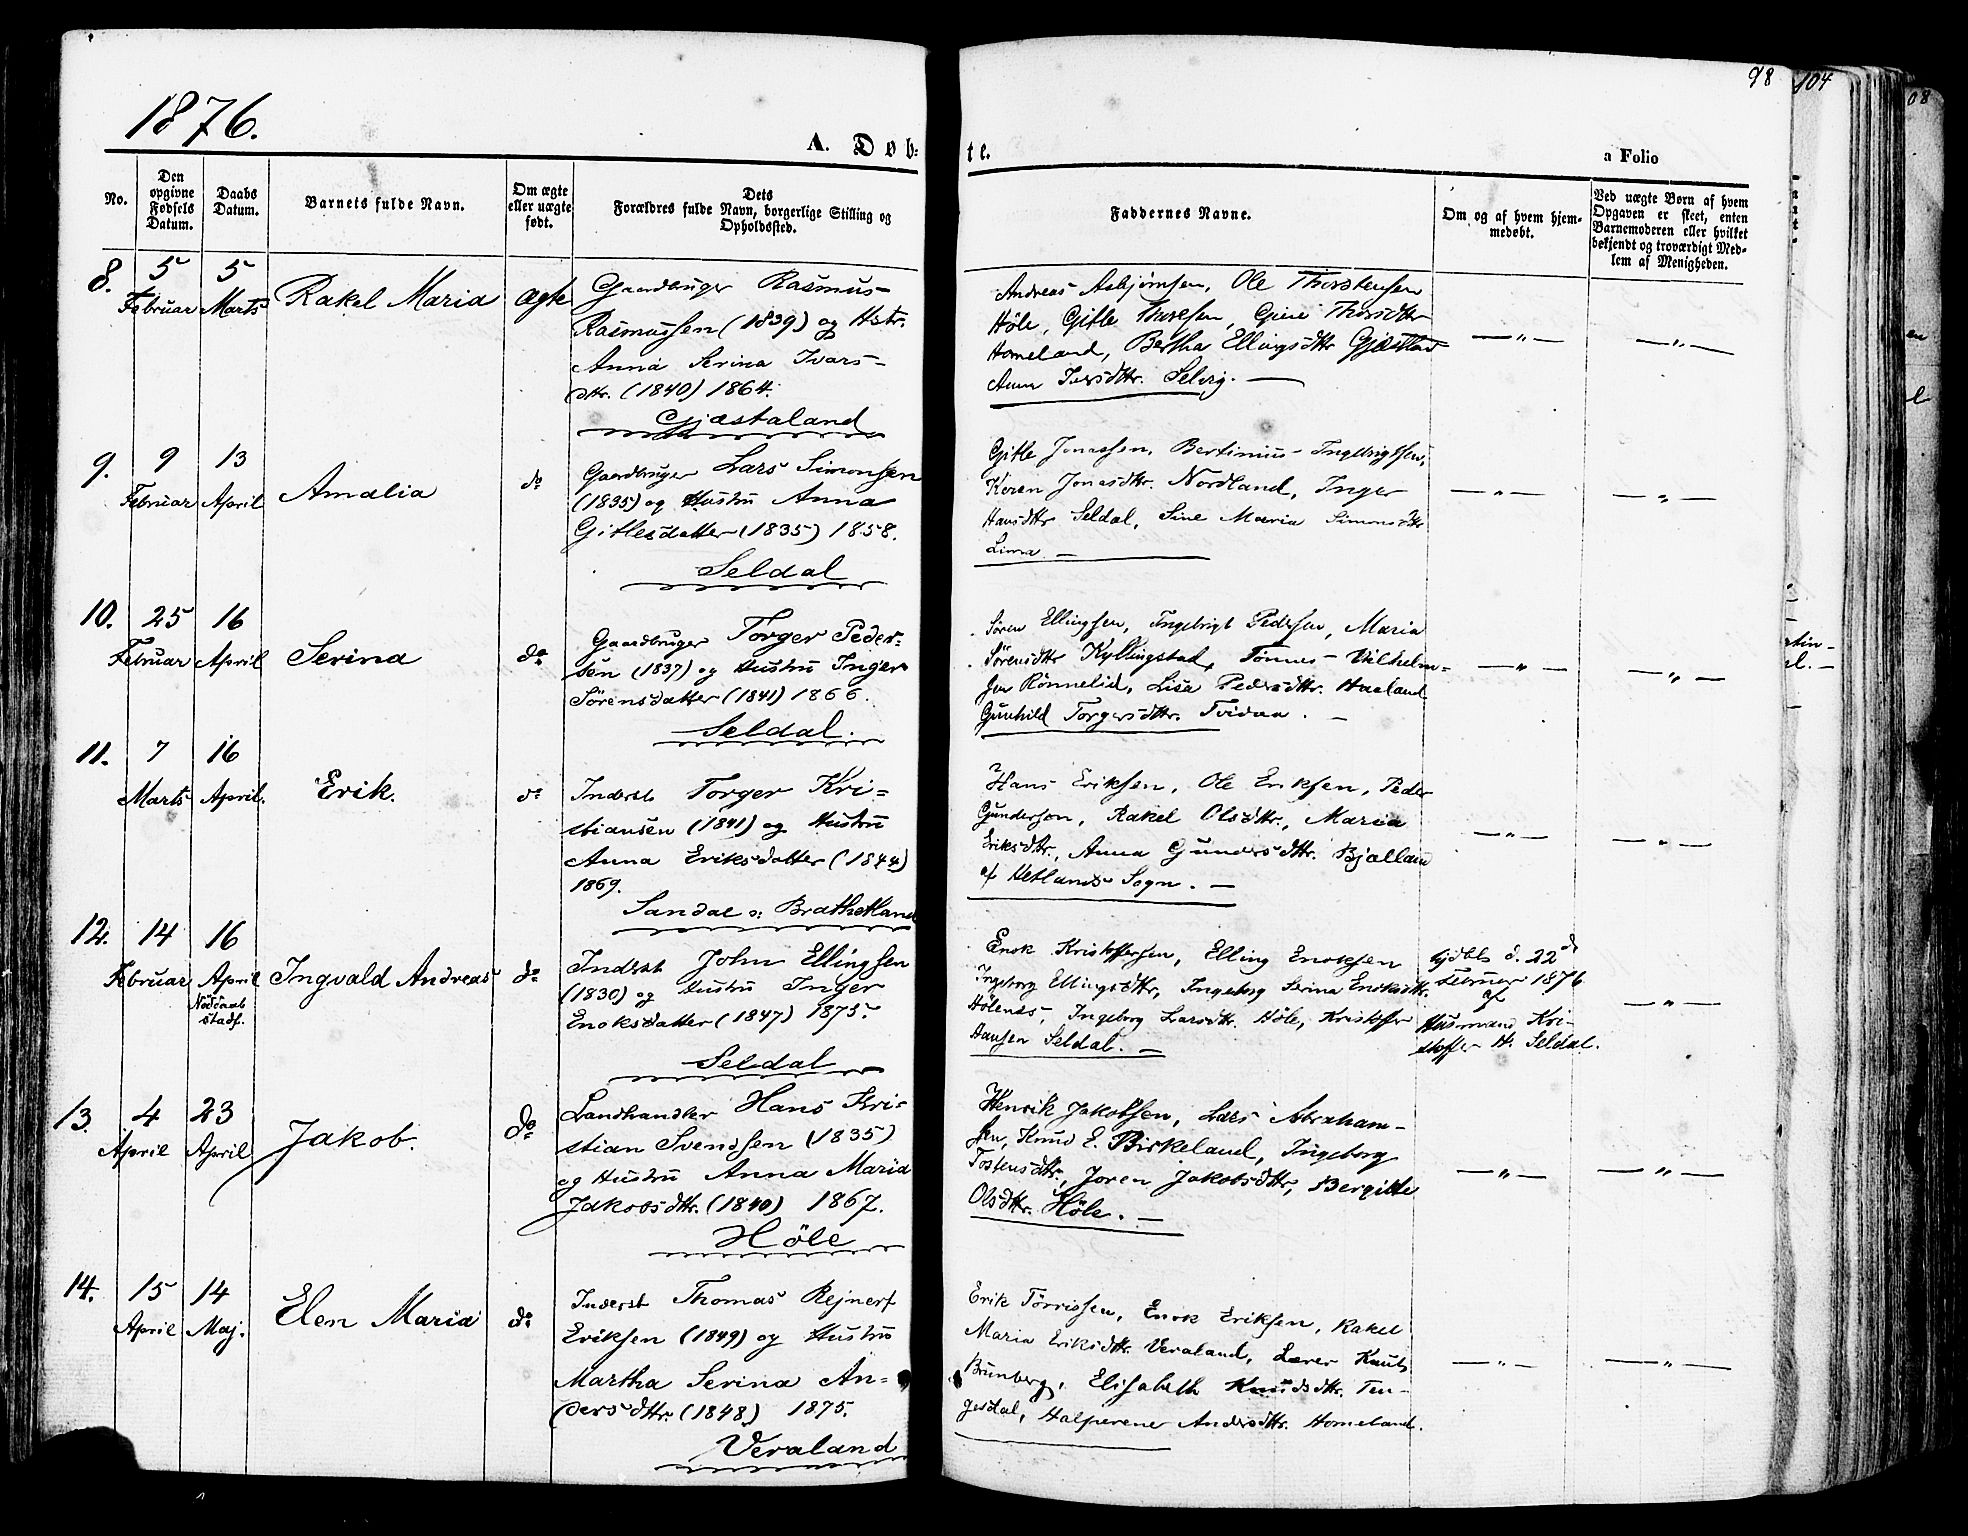 98
104
08
1876.
A. Døb-
te.
a Folio
No.
Den
opgivne
Fødsels
Datum.
Daabs
Datum.
Barnets fulde Navn.
Om ægte
eller uægte
født.
Dets
Forældres fulde Navn, borgerlige Stilling og
Opholdssted.
Faddernes Navne.
Om og af hvem hjem-
medøbt.
Ved uægte Børn af hvem
Opgaven er skeet, enten
Barnemoderen eller hvilket
bekjendt og troværdigt Med-
lem af Menigheden.
8.
5
Februar
5
Marts
Rakel Maria
Ægte
Gaardbruger Rasmus
Rasmussen (1839) og Hstr.
Anna Serina Ivars-
dtr. (1840) 1864.
Gjæstaland
Andreas Asbjørnsen, Ole Thorstensen
Höle, Gitle Thorsdttr
Homeland, Bertha Ellingsdttr
Anna Selvig. —
— " —
— " —
9.
9
Februar
13
April
Amalia
do
Gaardbruger Lars Simonsen
(1835) og Hustru Anna
Gitlesdatter (1835) 1858.
Seldal
Gitle Jonassen, Bertinius Ingebrigtsen,
Karen Jonasdttr. Nordland, Inger
Hansdttr Seldal, Sine Maria Simonsdttr
Lima. —
— " —
— " —
10.
25
Februar
16
April
Serina
do
Gaardbruger Torger Peder-
sen (1837) og Hustru Inger
Sörensdatter (1841) 1866.
Seldal.
Sören Ellingsen, Ingebrigt Pedersen, Maria
Sörensdttr Kyllingstad, Tönnes Vilhelm-
sen Rönnelid, Lisa Pedersdttr. Haaland
Gunhild Torgersdttr. Tvidaa. —
— " —
— " —
11.
7
Marts
16
April.
Erik.
do
Inderst Torger Kri-
stiansen (1841) og Hustru
Anna Eriksdatter (1844)
1869.
Sandal o: Brathetland
Hans Eriksen, Ole Eriksen, Peder
Gunderson, Rakel Olsdttr., Maria
Eriksdttr, Anna Gundersdttr. Bjelland
af Hetlands Sogn. —
— " —
— " —
12.
14
Februar
16
April
Nödaab
stadf.
Ingvald Andreas
do
Inderst John Ellingsen
(1830) og Hustru Inger
Enoksdatter (1847) 1875.
Seldal
Enok Kristoffersen, Elling Enoksen
Ingeborg Ellingsdttr, Ingeborg Serina Enoksdttr.
Hölenes, Ingeborg Larsdttr. Höle, Kristoffer
Hansen Seldal. —
Hjdbt d. 22d
Februar 1876
af
Husmand Kri-
stoffer H. Seldal.
— " —
13.
4
April
23
April
Jakob.
do
Landhandler Hans Kri-
stian Svendsen (1835)
og Hustru Anna Maria
Jakobsdttr. (1840) 1867.
Höle
Henrik Jakobsen, Lars Abraham-
sen, Knud E. Birkeland, Ingeborg
Tostensdttr, Joren Jakobsdttr, Bergitte
Olsdttr. Höle. —
— " —
— " —
14.
15
April
14
Maj.
Elen Maria
do
Inderst Thomas Rejnert
Eriksen (1849) og Hustru
Martha Serina An-
dersdttr. (1848) 1875.
Veraland
Erik Törrissen, Enok Eriksen, Rakel
Maria Eriksdttr. Veraland, Lærer Knut
Brunberg, Elisabeth Knudsdttr. Ten-
gesdal, Andersdttr. Homeland.
— " —
— " —